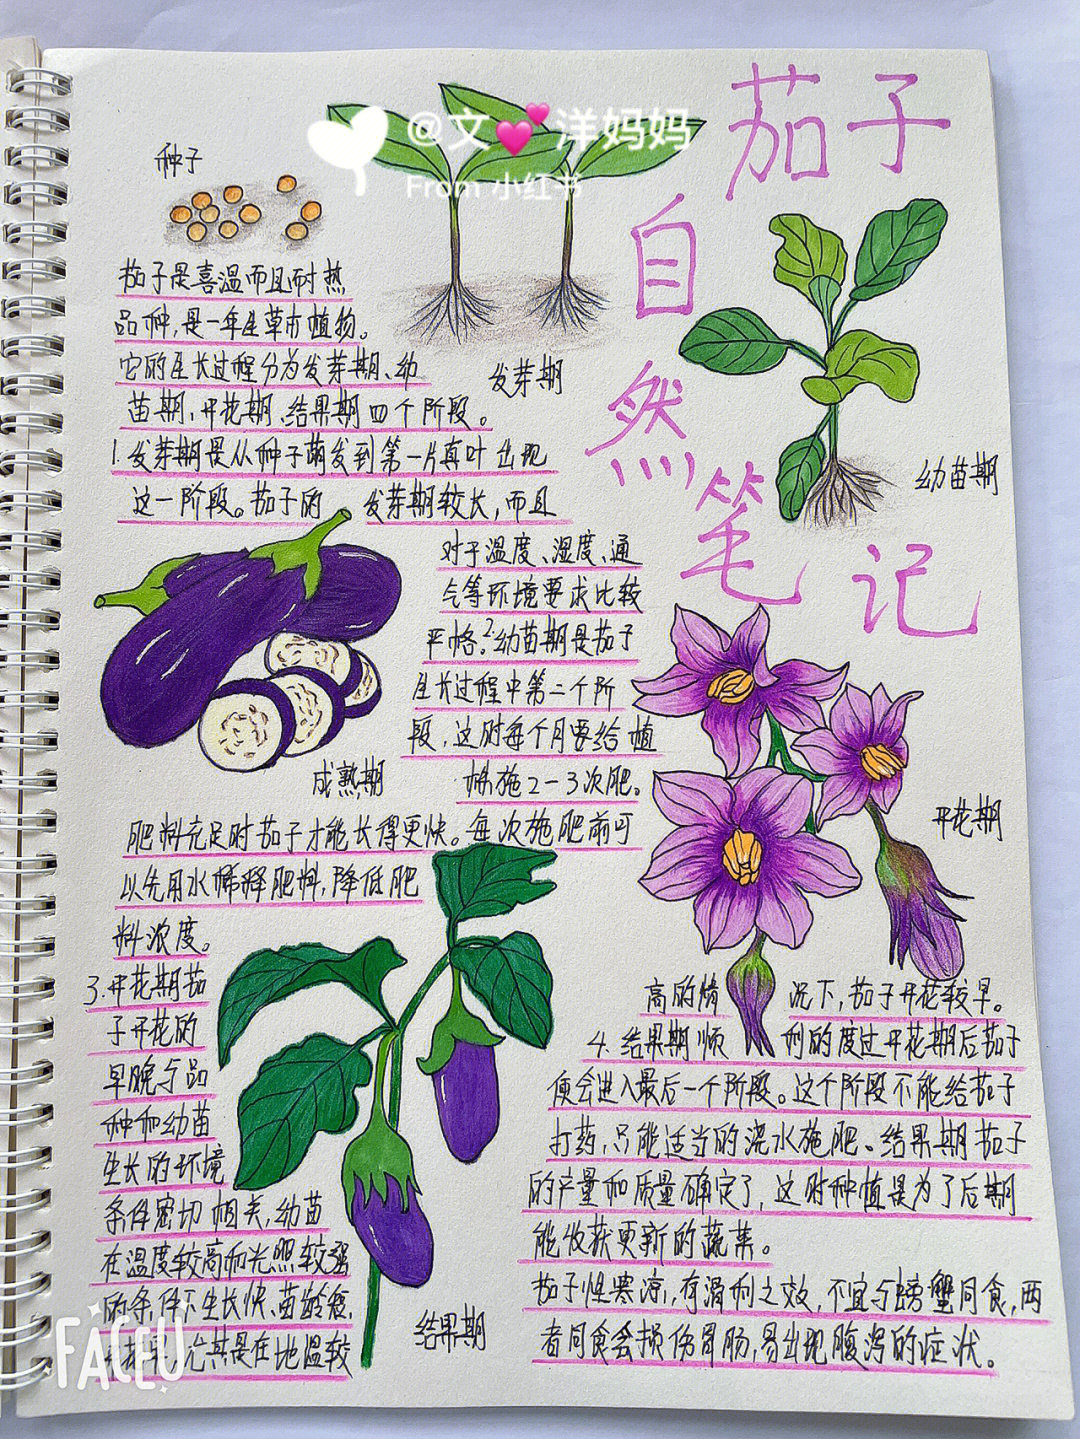 @文💕洋妈妈
From 小红书
茄子
自
然
笔
记
种子
发芽期
幼苗期
茄子是喜温而且耐热
品种,是一年生草本植物。
它的生长过程分为发芽期、幼
苗期、开花期、结果期四个阶段。
1.发芽期是从种子萌发到第一片真叶出现
这一阶段。茄子的 发芽期较长,而且
对于温度、湿度、通
气等环境要求比较
严格。2.幼苗期是茄子
生长过程中第二个阶
段,这时每个月要给植
株施2-3次肥。
成熟期
肥料充足时茄子才能长得更快。每次施肥前可
以先用水稀释肥料,降低肥
料浓度。
开花期
3.开花期茄
子开花的
早晚与品
种和幼苗
生长的环境
条件密切相关,幼苗
在温度较高和光照较强
的条件下生长快、苗龄短,
尤其是在地温较
结果期
高的情 况下,茄子开花较早。
4.结果期顺 利的度过开花期后茄子
便会进入最后一个阶段。这个阶段不能给茄子
打药,只能适当的浇水施肥。结果期茄子
的产量和质量确定了,这时种植是为了后期
能收获更新的蔬菜。
茄子性寒凉,有滑利之效,不宜与螃蟹同食,两
者同食会损伤胃肠,易出现腹泻的症状。
FACEU